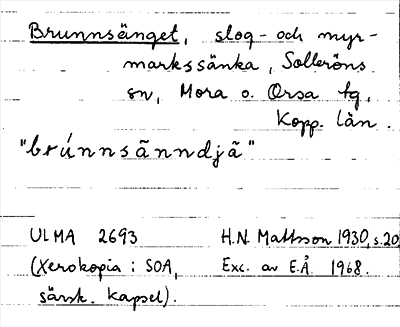 Brunnsänget, slog- och myr-
markssänka, Solleröns
sn, Mora o. Orsa tg,
Kopp. län.
"brúnnsãnndjã"
ULMA 2693 H.N. Mattsson 1930, s.20
(Xerokopia i SOA, Exc. av E.Å 1968.
särsk. kapsel).